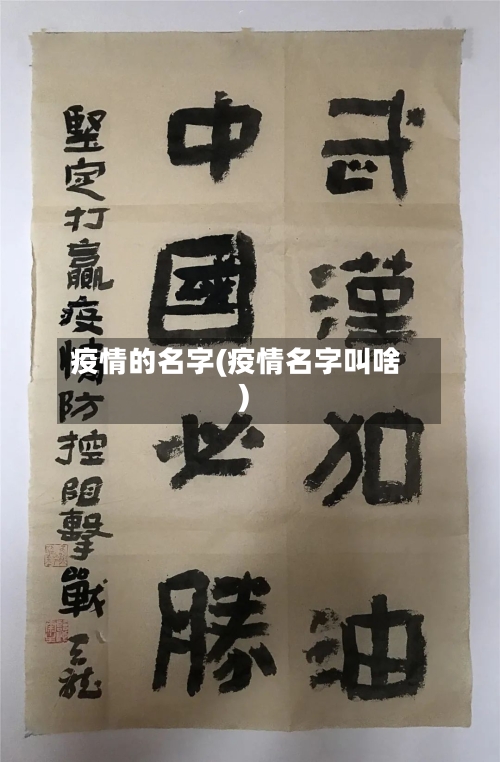 武漢加油
中國必勝
堅定打贏疫情防控阻擊戰
疫情的名字(疫情名字叫啥
)